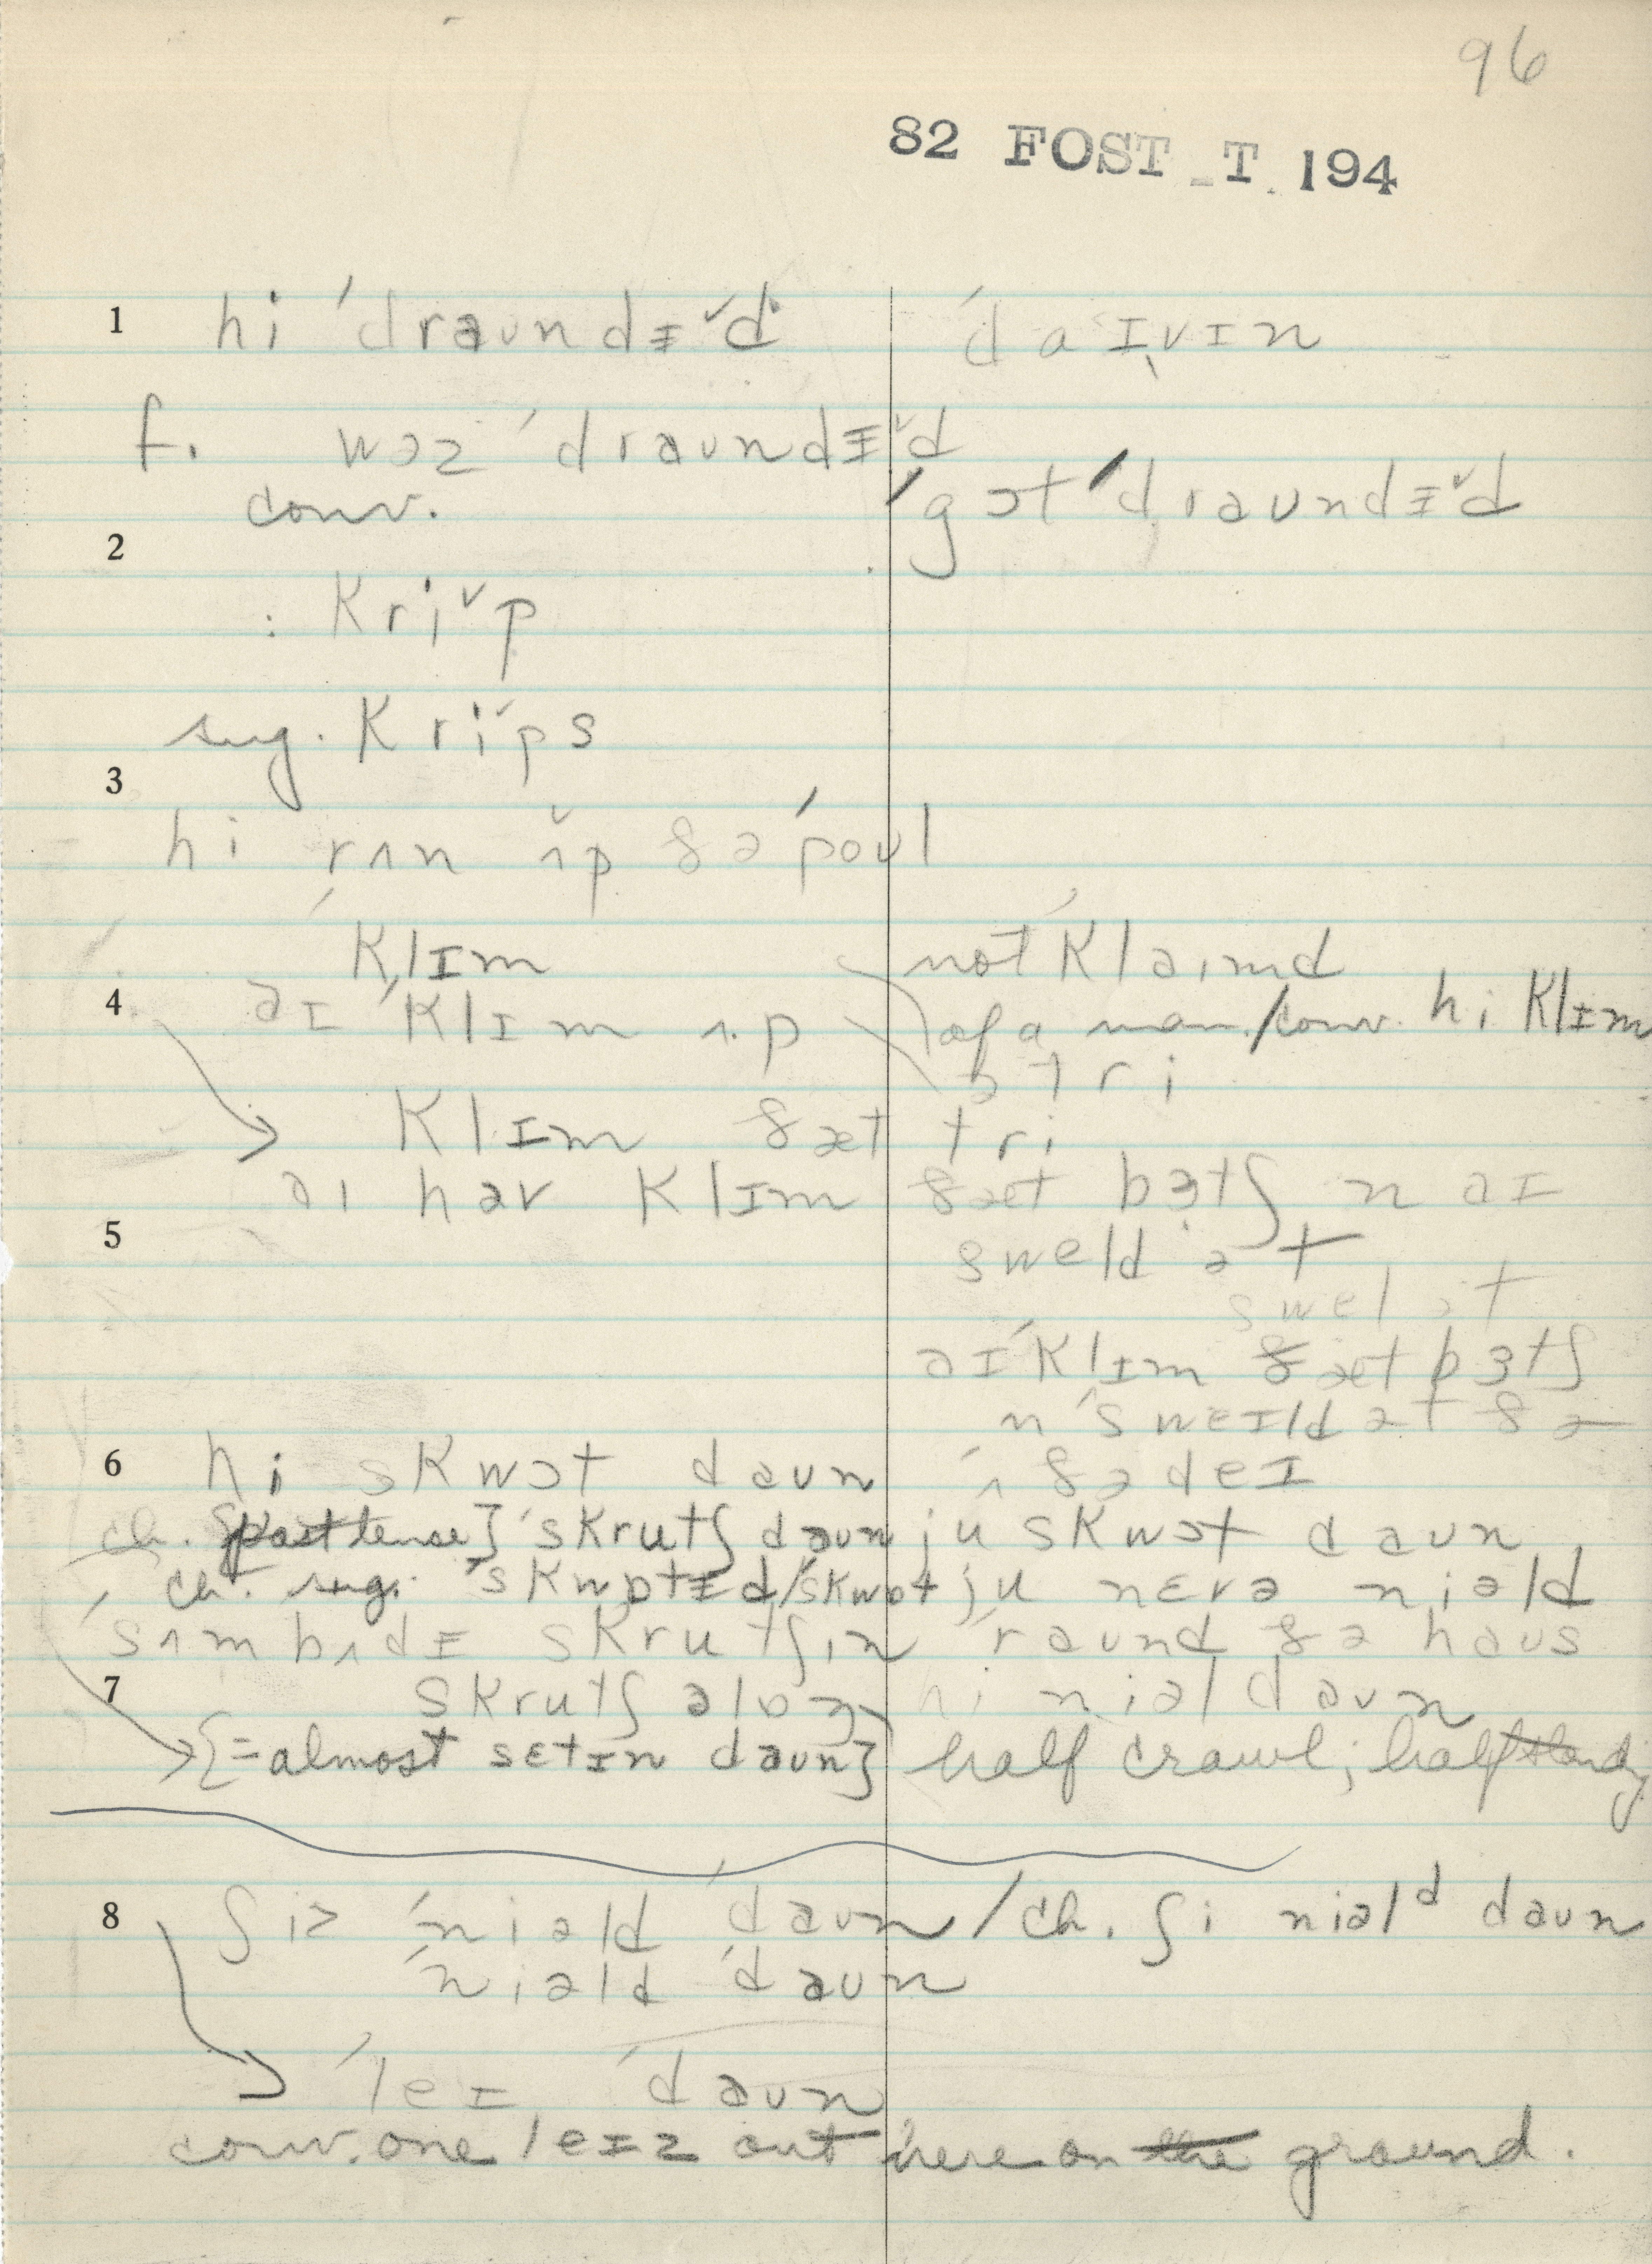 96
82 FOST T 194
1 hi ˈdraʊndɪ̵̌d ˈdaɪvɪn
f. wɔz ˈdraʊndɪ̵̌d
conv. ˈgɔt ˈdraʊndɪ̵̌d
2
: kri̬p
sug. kri̬ps
3
hi rʌn ʌ̌p ðə ˈpoʊl
ˈklɪm not ˈklaɪmd
4 aɪ ˈklɪm ʌp of a man / conv. hi klɪm
ə tri
klɪm ðæt tri
aɪ həv klɪm ðæt bɜtʃ n aɪ
5 sweld ət
swel ət
aɪ ˈklɪm ðæt bɜtʃ
n ˈsweɪld ət ðə
6 hi skwɔt daʊn ˈʌðə deɪ
ch. [past tense] ˈskrutʃ daʊn ju skwɔt daʊn
ch. sug. ˈskwɒtɪ̵d / ˈskwɒt ju nɛvə niəld
ˈsʌmbʌdɪ̵ skrutʃɪn ˈraʊnd ðə haʊs
7 skrutʃ əlɒŋ hi niəl daʊn
{=almost sɛtɪn daʊn} half crawl; half
8 ʃiz ˈniəld ˈdaʊn / ch. ʃi niəlᵈ daʊn
ˈniəld ˈdaʊn
ˈleɪ ˈdaʊn
conv. one leɪz out here on the ground.